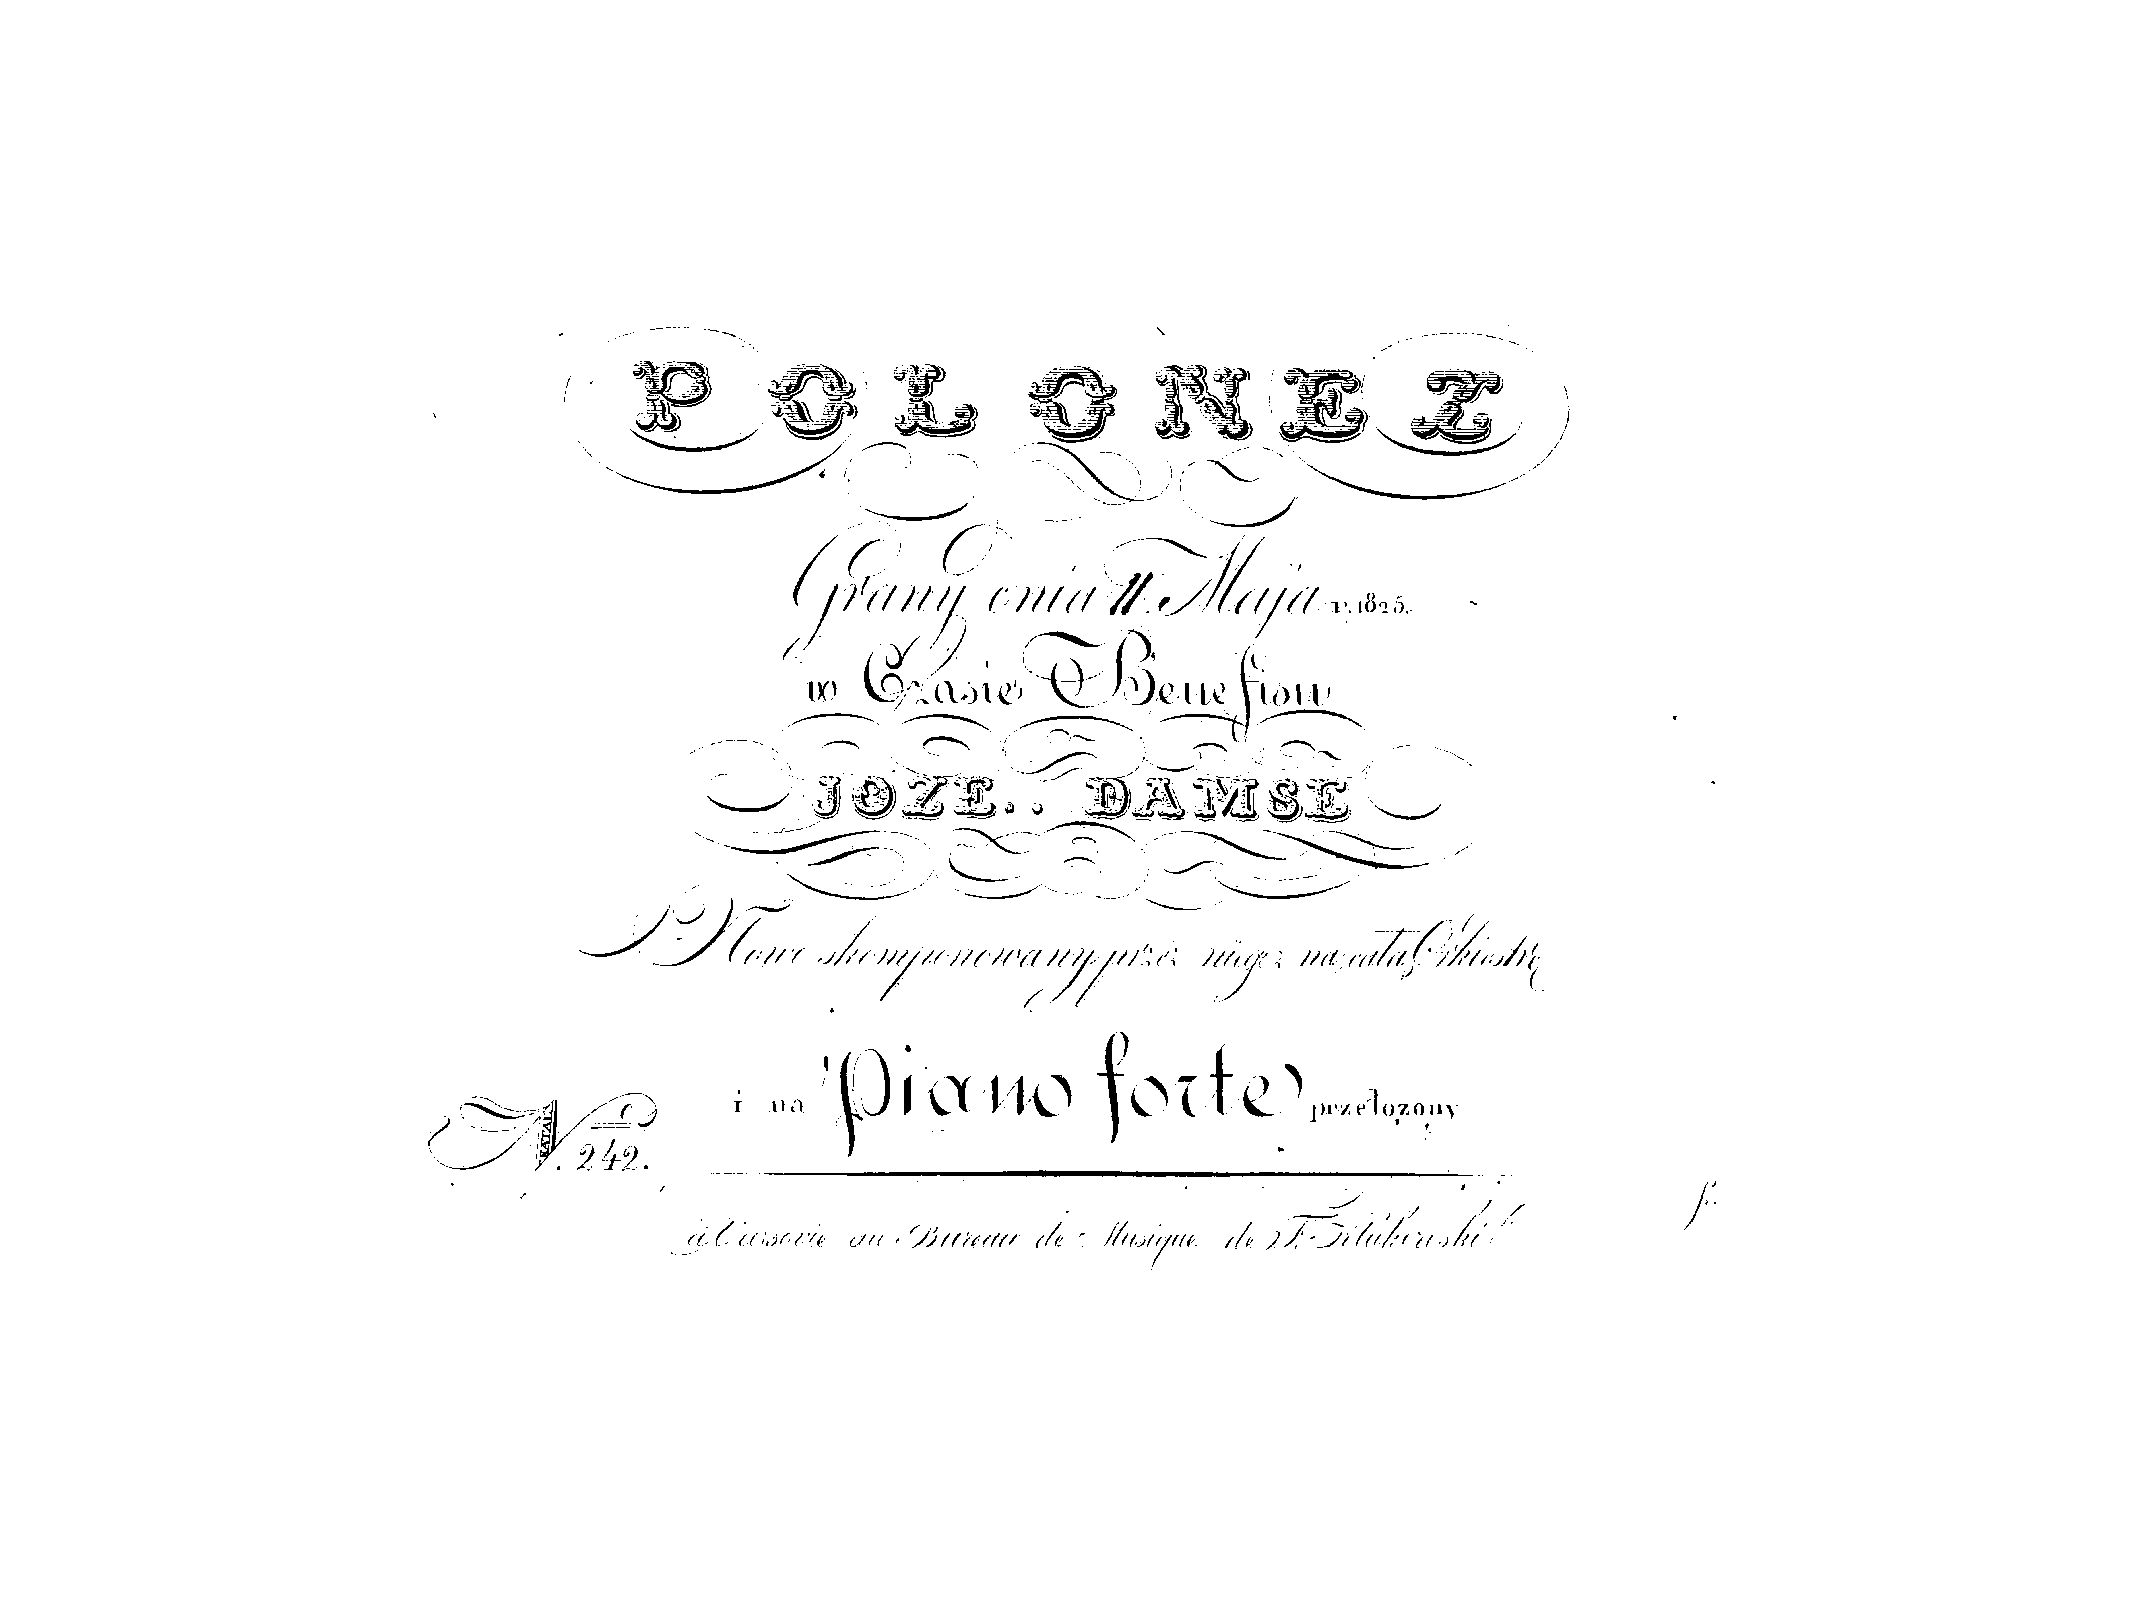 POLONEZ
Grany dnia 11. Maja r. 1825.
w Czasie Benefisu
JOZE.. DAMSE
Nowo skomponowany przez niegoz na całą Orkiestrę
i na Piano forte przełozony
N.º 242.
à Varsovie au Bureau de Musique de